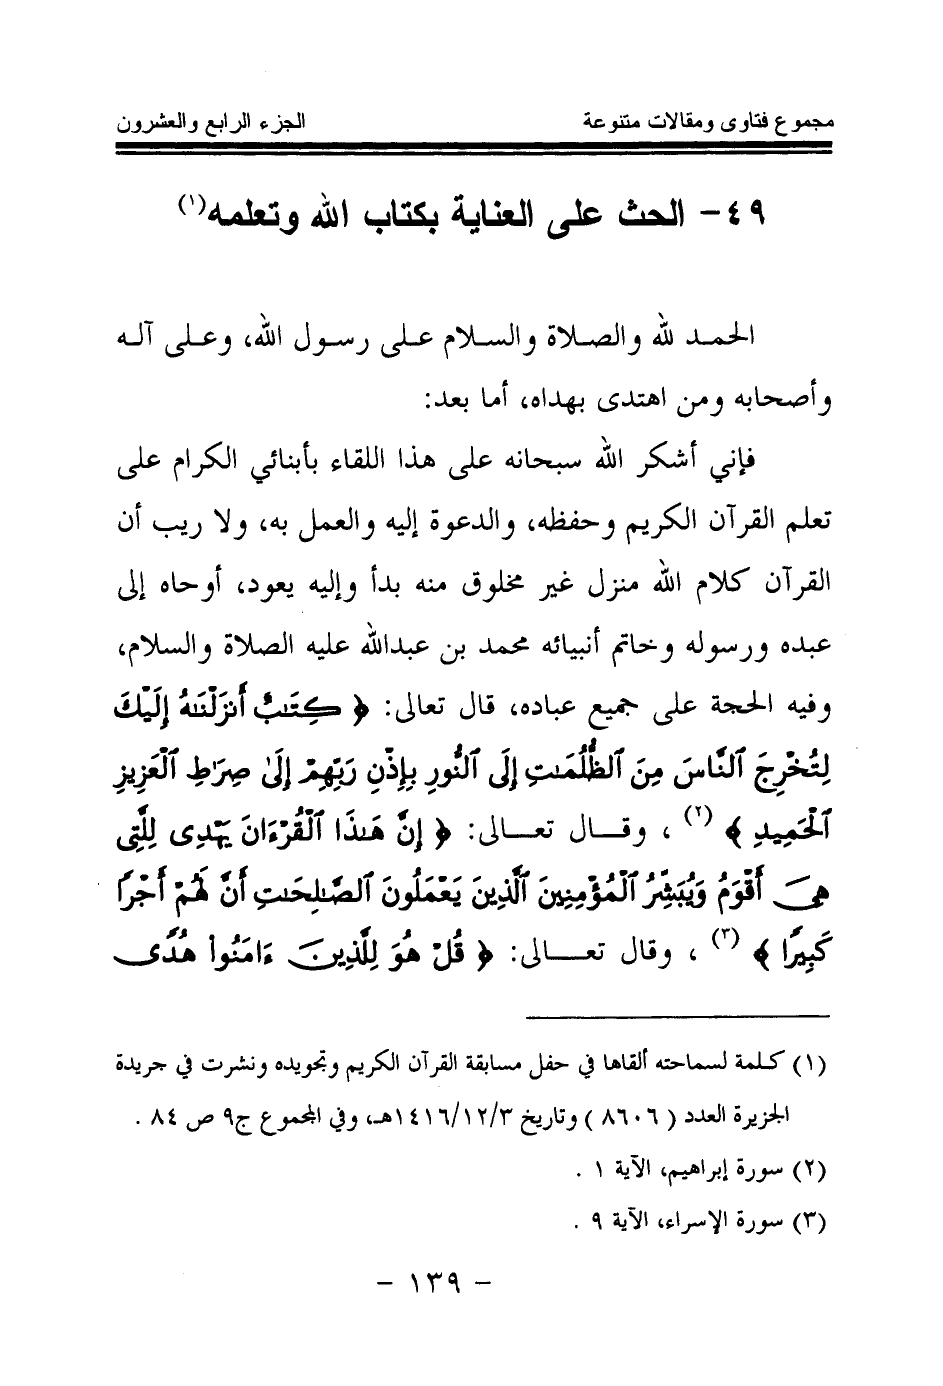 مجموع فتاوى ومقالات متنوعة الجزء الرابع والعشرون
٤٩ - الحث على العناية بكتاب الله وتعلمه(١)
الحمد لله والصلاة والسلام على رسول الله، وعلى آله
وأصحابه ومن اهتدى بهداه، أما بعد:
فإني أشكر الله سبحانه على هذا اللقاء بأبنائي الكرام على
تعلم القرآن الكريم وحفظه، والدعوة إليه والعمل به، ولا ريب أن
القرآن كلام الله منزل غير مخلوق منه بدأ وإليه يعود، أوحاه إلى
عبده ورسوله وخاتم أنبيائه محمد بن عبدالله عليه الصلاة والسلام،
وفيه الحجة على جميع عباده، قال تعالى: ﴿ كِتَٰبٌ أَنزَلْنَٰهُ إِلَيْكَ
لِتُخْرِجَ ٱلنَّاسَ مِنَ ٱلظُّلُمَٰتِ إِلَى ٱلنُّورِ بِإِذْنِ رَبِّهِمْ إِلَىٰ صِرَٰطِ ٱلْعَزِيزِ
ٱلْحَمِيدِ ﴾ (٢) ، وقال تعالى: ﴿ إِنَّ هَٰذَا ٱلْقُرْءَانَ يَهْدِى لِلَّتِى
هِىَ أَقْوَمُ وَيُبَشِّرُ ٱلْمُؤْمِنِينَ ٱلَّذِينَ يَعْمَلُونَ ٱلصَّٰلِحَٰتِ أَنَّ لَهُمْ أَجْرًا
كَبِيرًا ﴾ (٣) ، وقال تعالى: ﴿ قُلْ هُوَ لِلَّذِينَ ءَامَنُوا۟ هُدًى
(١) كلمة لسماحته ألقاها في حفل مسابقة القرآن الكريم وتجويده ونشرت في جريدة
الجزيرة العدد ( ٨٦٠٦ ) وتاريخ ١٤١٦/١٢/٣هـ، وفي المجموع ج٩ ص ٨٤ .
(٢) سورة إبراهيم، الآية ١ .
(٣) سورة الإسراء، الآية ٩ .
- ١٣٩ -